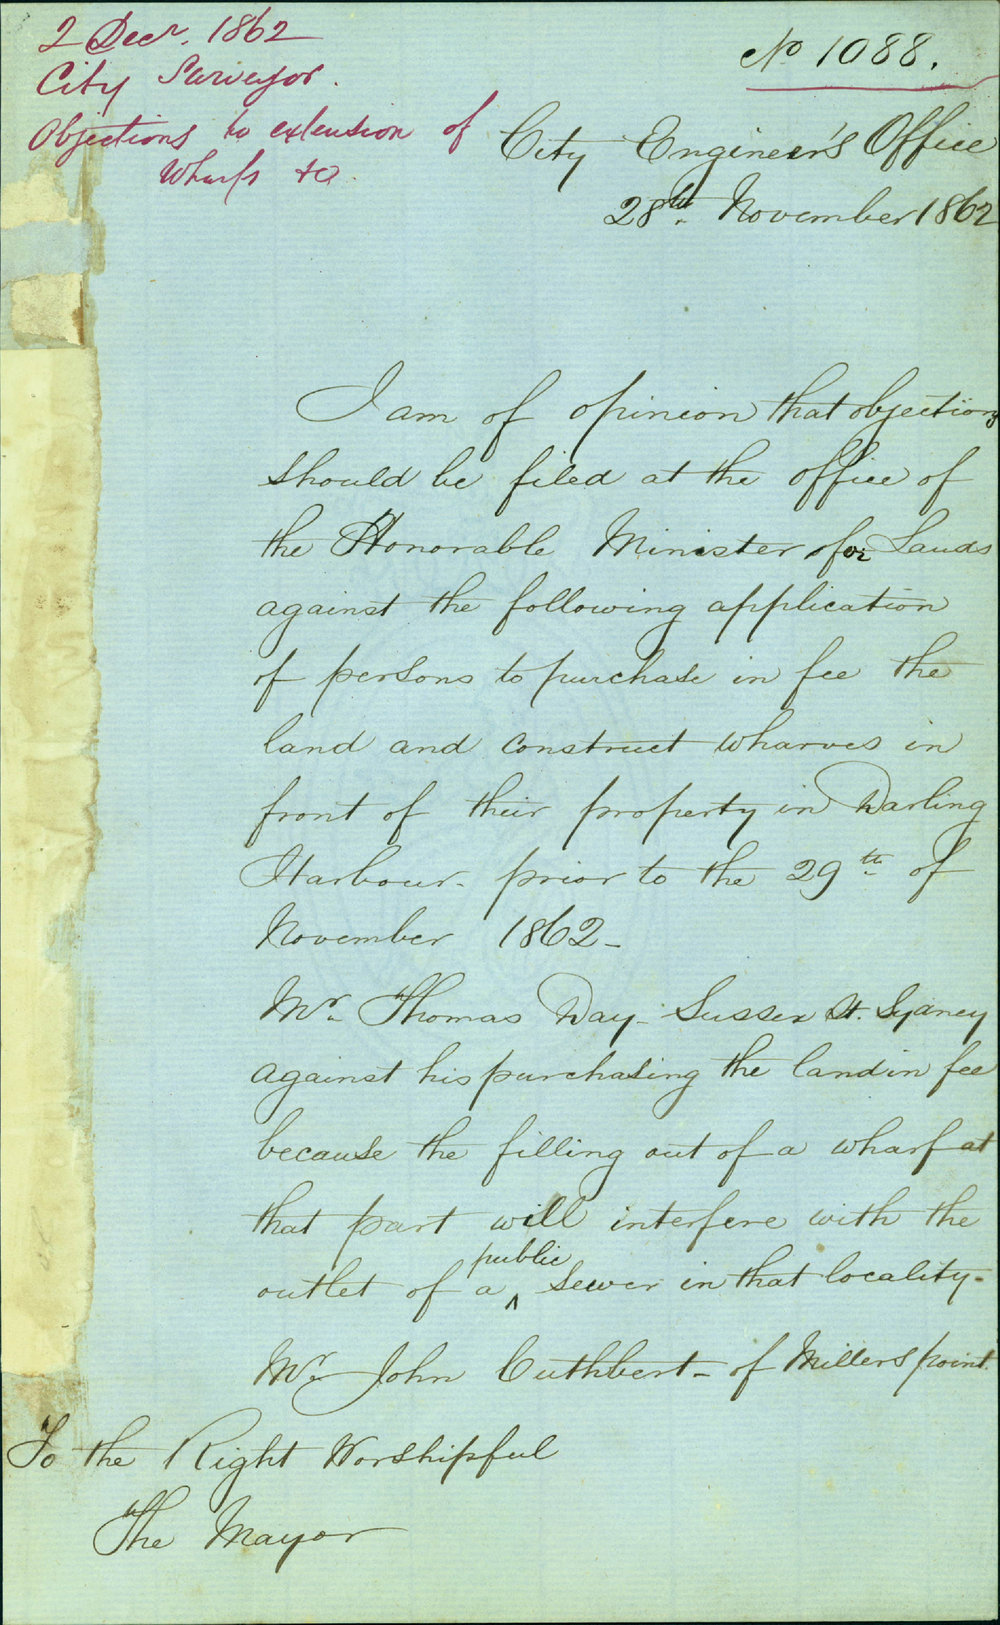 2 Decr. 1862
City Surveyor.
Objections to extension of
Wharfs &a
No 1088.
City Engineer's Office
28th. November 1862
I am of opinion that objections
should be filed at the office of
the Honorable Minister for Lands
against the following application
of persons to purchase in fee the
land and construct wharves in
front of their property in Darling
Harbour. prior to the 29th of
November 1862-
Mr. Thomas Day - Sussex St. Sydney
against his purchasing the land in fee
because the filling out of a wharf at
that part will interfere with the
public
outlet of a ^ sewer in that locality-
Mr. John Cuthbert - of Millers point.
To the Right Worshipful
The Mayor